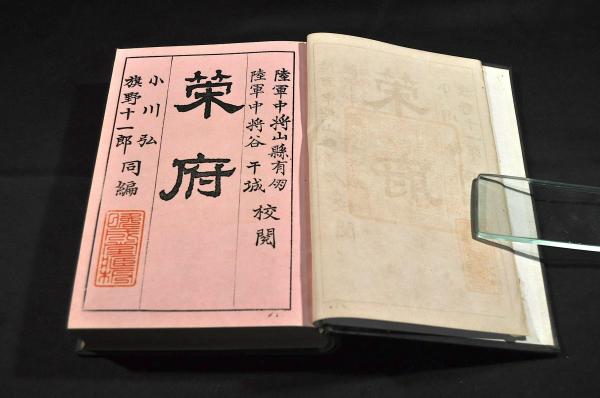 陸軍中將山縣有朋
陸軍中將谷干城
校閲
策府
小川弘
旗野十一郎
同編